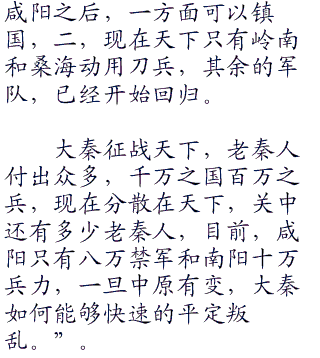 咸阳之后，一方面可以镇
国，二，现在天下只有岭南
和桑海动用刀兵，其余的军
队，已经开始回归。
大秦征战天下，老秦人
付出众多，千万之国百万之
兵，现在分散在天下，关中
还有多少老秦人，目前，咸
阳只有八万禁军和南阳十万
兵力，一旦中原有变，大秦
如何能够快速的平定叛
乱。”。